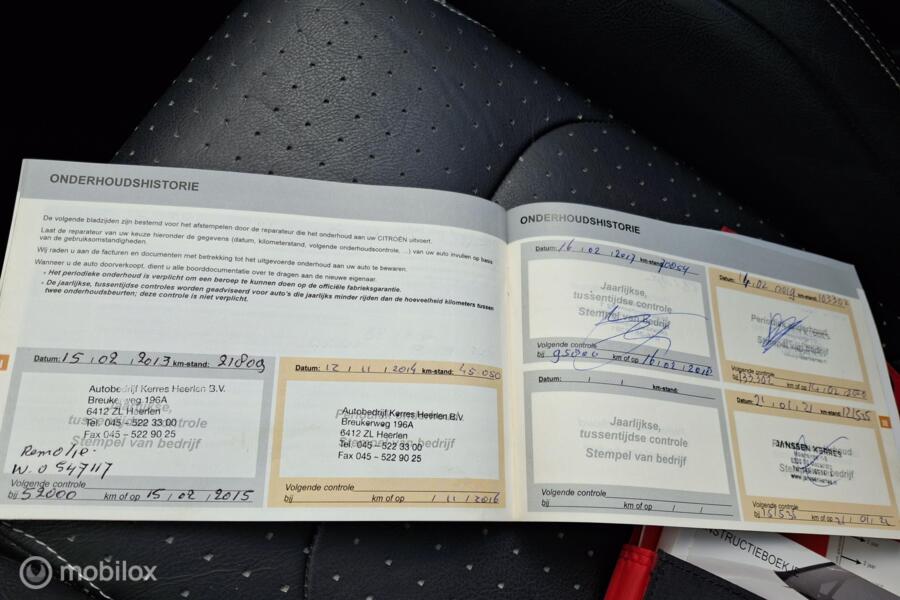 ONDERHOUDSHISTORIE
De volgende bladzijden zijn bestemd voor het afstempelen door de reparateur die het onderhoud aan uw CITROËN uitvoert.
Laat de reparateur van uw keuze hieronder de gegevens (datum, kilometerstand, volgende onderhoudscontrole, ...) van uw auto invullen op basis
van de gebruiksomstandigheden.
Wij raden u aan de facturen en documenten met betrekking tot het uitgevoerde onderhoud aan uw auto te bewaren.
Wanneer u de auto doorverkoopt, dient u alle boorddocumentatie over te dragen aan de nieuwe eigenaar.
- Het periodieke onderhoud is verplicht om een beroep te kunnen doen op de officiële fabrieksgarantie.
- De jaarlijkse, tussentijdse controles worden geadviseerd voor auto's die jaarlijks minder rijden dan de hoeveelheid kilometers tussen
twee onderhoudsbeurten; deze controle is niet verplicht.
Datum: 15 , 02 , 2013 km-stand: 21809
Autobedrijf Kerres Heerlen B.V.
Breukerweg 196A
6412 ZL Heerlen
Tel. 045 - 522 33 00
Fax 045 - 522 90 25
Jaarlijkse,
tussentijdse controle
Stempel van bedrijf
Remolie.
W.O 547117
Volgende controle
bij 52000 km of op 15 , 02 , 2015
Datum: 12 , 11 , 2014 km-stand: 45.050
Autobedrijf Kerres Heerlen B.V.
Breukerweg 196A
6412 ZL Heerlen
Tel. 045 - 522 33 00
Fax 045 - 522 90 25
Stempel van bedrijf
Volgende controle
bij km of op / 11 / 2016
ONDERHOUDSHISTORIE
Datum: 16 , 02 , 2017 km-stand: 70054
Jaarlijkse,
tussentijdse controle
Stempel van bedrijf
Volgende controle
bij 95000 km of op 16 , 02 , 2018
Datum: 14 , 02 2019 km-stand: 103302
Periodiek onderhoud
Stempel van bedrijf
Volgende controle
bij 133302 km of op 14 , 02
Datum: / / km-stand:
Jaarlijkse,
tussentijdse controle
Stempel van bedrijf
Volgende controle
bij km of op / /
Datum: 21 , 01 , 21 km-stand: 121535
JANSSEN KERRES
Stempel van bedrijf
Volgende controle
bij 151535 km of op 21 , 01 , 22
INSTRUCTIEBOEKJE
mobilox